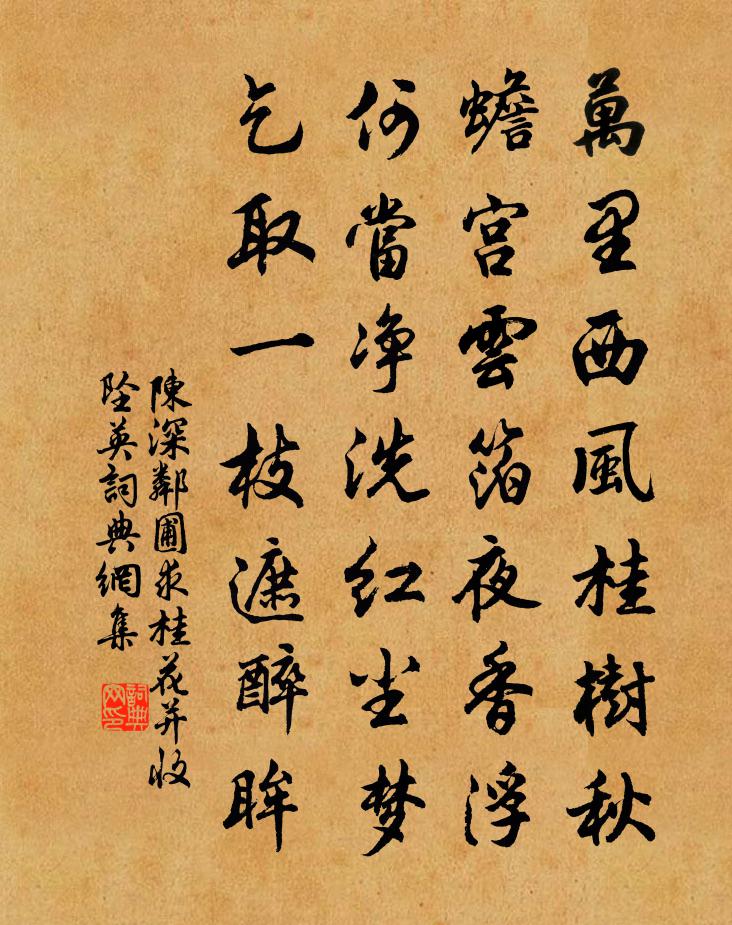 萬里西風桂樹秋
蟾宮雲箔夜香浮
何當净洗红尘梦
乞取一枝遮醉眸
陳深鄰圃求桂花并收
坠英詞典網集
詞典
网印